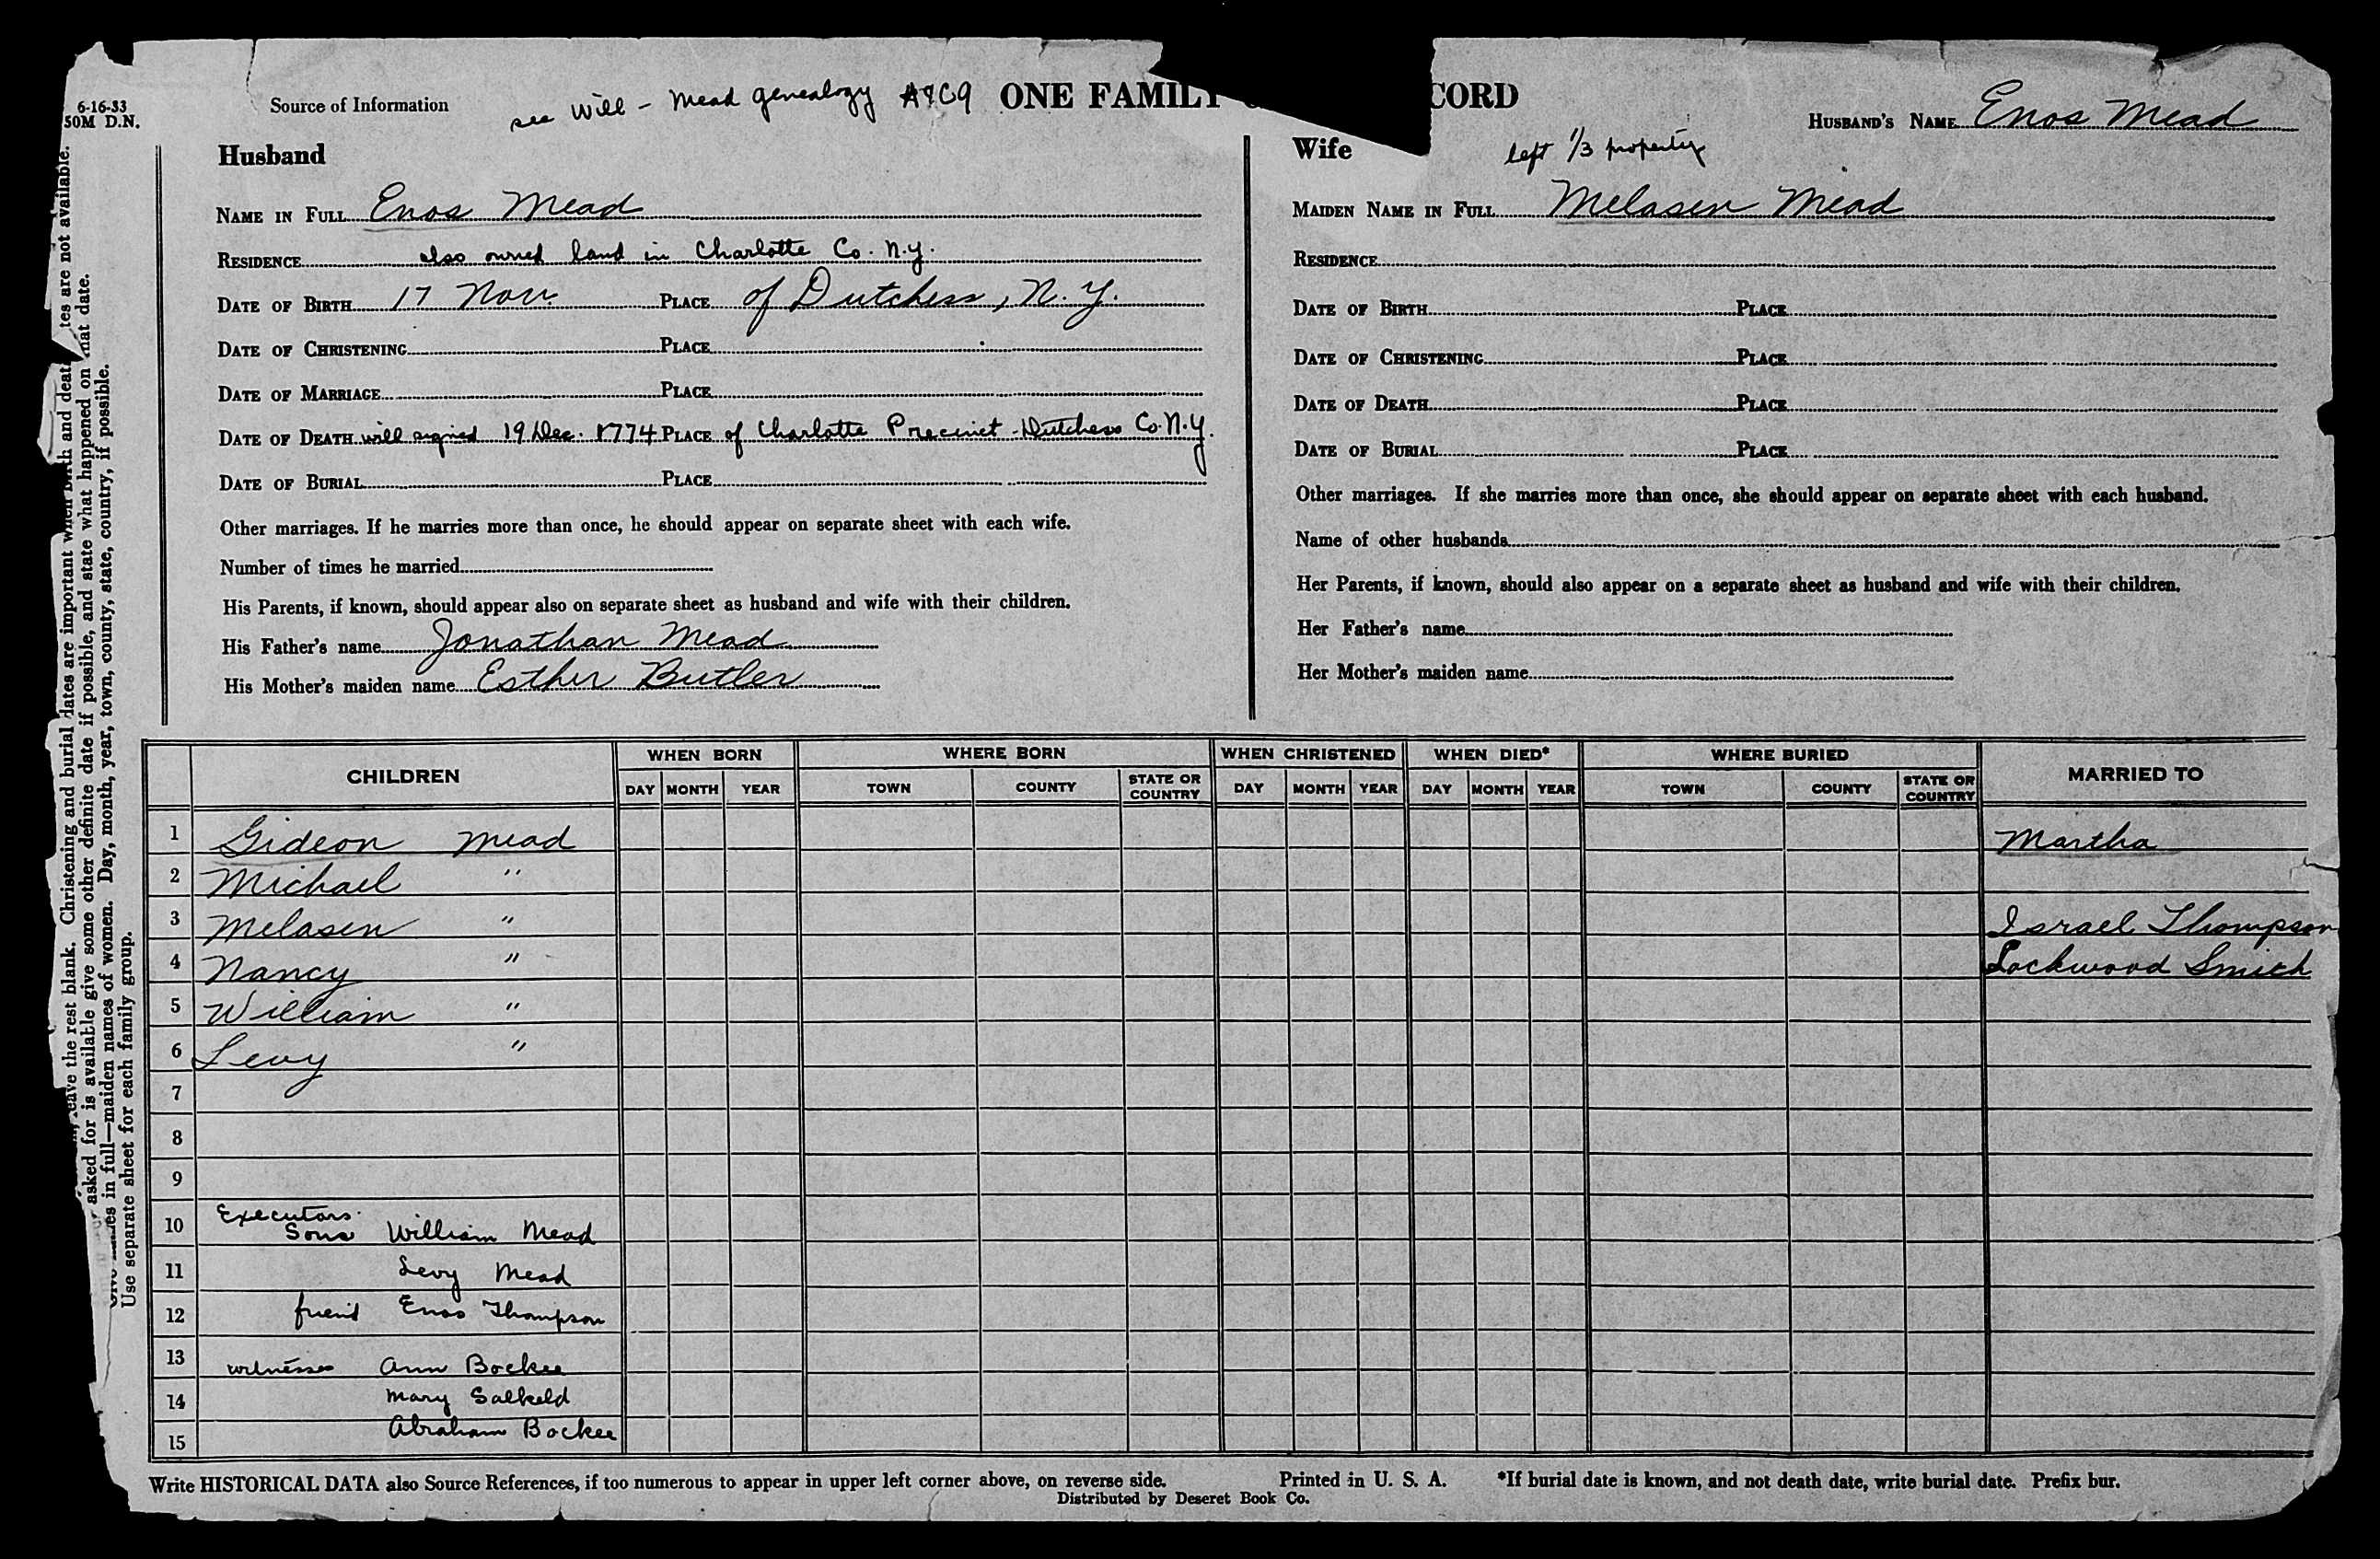 6-16-33
50M D.N.
Source of Information
see Will - Mead genealogy A7C9
ONE FAMILY
CORD
HUSBAND'S NAME Enos Mead
Husband
NAME IN FULL Enos Mead
RESIDENCE also owned land in Charlotte Co. N.Y.
DATE OF BIRTH 17 Nov. PLACE of Dutchess, N.Y.
DATE OF CHRISTENING PLACE
DATE OF MARRIAGE PLACE
DATE OF DEATH will signed 19 Dec. 1774 PLACE of Charlotte Precinct - Dutchess Co. N.Y.
DATE OF BURIAL PLACE
Other marriages. If he marries more than once, he should appear on separate sheet with each wife.
Number of times he married
His Parents, if known, should appear also on separate sheet as husband and wife with their children.
His Father's name Jonathan Mead
His Mother's maiden name Esther Butler
Wife left 1/3 property
MAIDEN NAME IN FULL Melasen Mead
RESIDENCE
DATE OF BIRTH PLACE
DATE OF CHRISTENING PLACE
DATE OF DEATH PLACE
DATE OF BURIAL PLACE
Other marriages. If she marries more than once, she should appear on separate sheet with each husband.
Name of other husbands
Her Parents, if known, should also appear on a separate sheet as husband and wife with their children.
Her Father's name
Her Mother's maiden name
CHILDREN WHEN BORN WHERE BORN WHEN CHRISTENED WHEN DIED* WHERE BURIED MARRIED TO
DAY MONTH YEAR TOWN COUNTY STATE OR COUNTRY DAY MONTH YEAR DAY MONTH YEAR TOWN COUNTY STATE OR COUNTRY
1 Gideon Mead Martha
2 Michael "
3 Melasen " Israel Thompson
4 Nancy " Lockwood Smith
5 William "
6 Levy "
7
8
9
Executors.
10 Sons William Mead
11 Levy Mead
12 friend Enos Thompson
13 witnesses Ann Bockee
14 Mary Salkeld
15 Abraham Bockee
Write HISTORICAL DATA also Source References, if too numerous to appear in upper left corner above, on reverse side. Printed in U. S. A. *If burial date is known, and not death date, write burial date. Prefix bur.
Distributed by Deseret Book Co.
leave the rest blank. Christening and burial dates are important when birth and death dates are not available.
asked for is available give some other definite date if possible, and state what happened on that date.
names in full—maiden names of women. Day, month, year, town, county, state, country, if possible.
Use separate sheet for each family group.